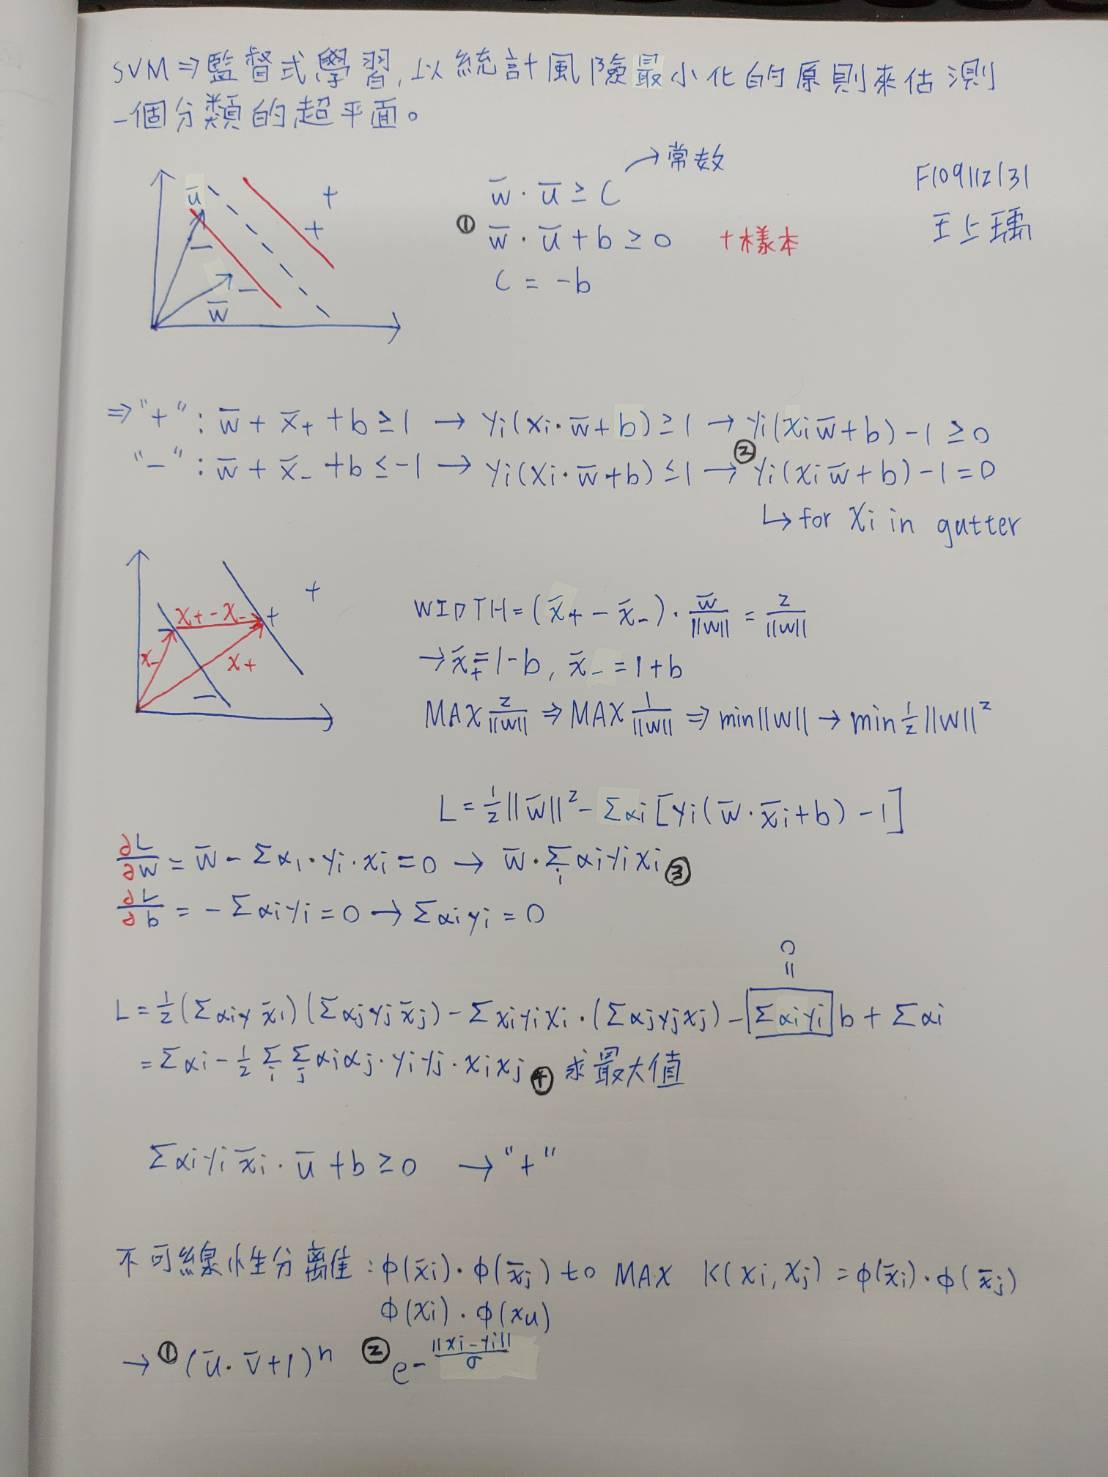 SVM⇒監督式學習,以統計風險最小化的原則來估測
一個分類的超平面。
→常数
w̅·u̅≥C
① w̅·u̅+b≥0 +樣本
C=-b
F109112131
王上
u̅
+
+
-
-
w̅
⇒"+":w̅+x̅₊+b≥1→yi(xi·w̅+b)≥1→yi(xiw̅+b)-1≥0
"-":w̅+x̅₋+b≤-1→yi(xi·w̅+b)≤1→②yi(xiw̅+b)-1=0
↳for xi in gutter
+
x₊-x₋
+
x₋
x₊
-
WIDTH=(x̅₊-x̅₋)·w̅/||w||=2/||w||
→x̅₊=1-b, x̅₋=1+b
MAX 2/||w||⇒MAX 1/||w||⇒min||w||→min½||w||²
L=½||w̅||²-Σαi[yi(w̅·x̅i+b)-1]
∂L/∂w=w̅-Σα₁·yi·xi=0→w̅·Σi αiyixi③
∂L/∂b=-Σαiyi=0→Σαiyi=0
0
||
L=½(Σαiy x̅i)(Σαjyjx̅j)-Σxiyixi·(Σαjyjxj)-Σαiyi b+Σαi
=Σαi-½Σi Σj αiαj·yiyj·xixj④求最大值
Σαiyix̅i·u̅+b≥0 →"+"
不可線性分離佳:φ(x̅i)·φ(x̅j) to MAX K(xi,xj)=φ(x̅i)·φ(x̅j)
φ(xi)·φ(xu)
→①(u̅·v̅+1)ⁿ ②e-||xi-yi||/σ